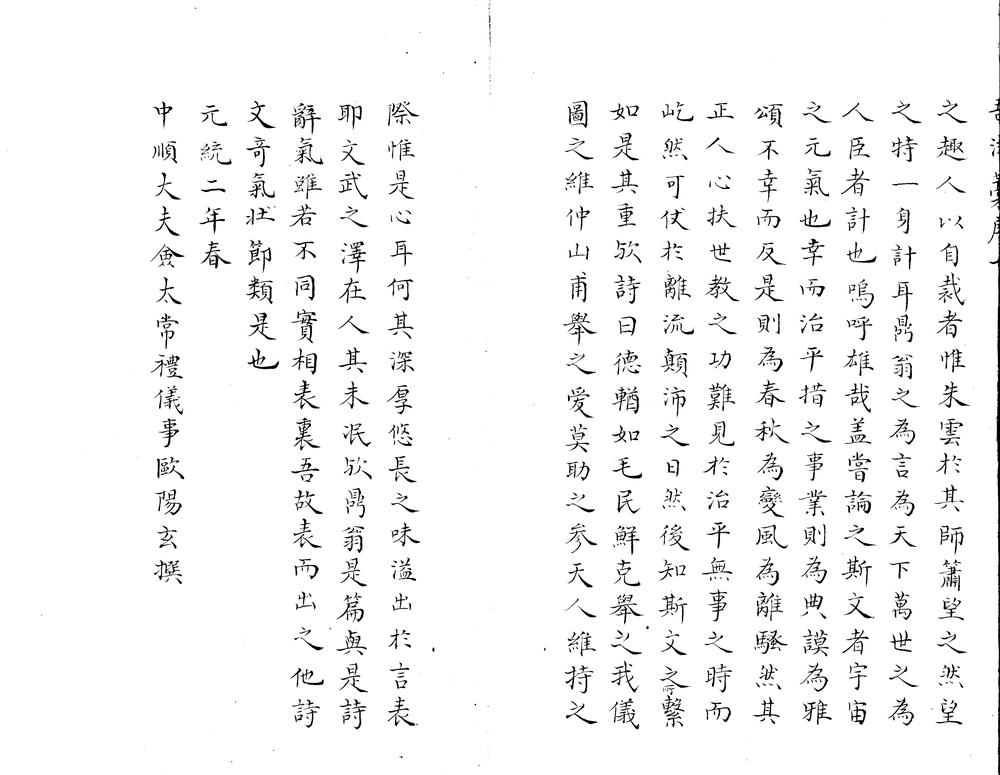 之趣人以自裁者惟朱雲於其師簫望之然望
之特一身計耳鼎翁之為言為天下萬世之為
人臣者計也嗚呼雄哉盖嘗論之斯文者宇宙
之元氣也幸而治平措之事業則為典謨為雅
頌不幸而反是則為春秋為變風為離騷然其
正人心扶世教之功難見於治平無事之時而
屹然可仗於離流顛沛之日然後知斯文之所繫
如是其重欤詩曰德輶如毛民鮮克舉之我儀
圖之維仲山甫舉之爱莫助之参天人維持之
際惟是心耳何其深厚悠長之味溢出於言表
耶文武之澤在人其未泯欤鼎翁是篇與是詩
辭氣雖若不同實相表裏吾故表而出之他詩
文竒氣壯節類是也
元統二年春
中順大夫僉太常禮儀事歐陽玄撰